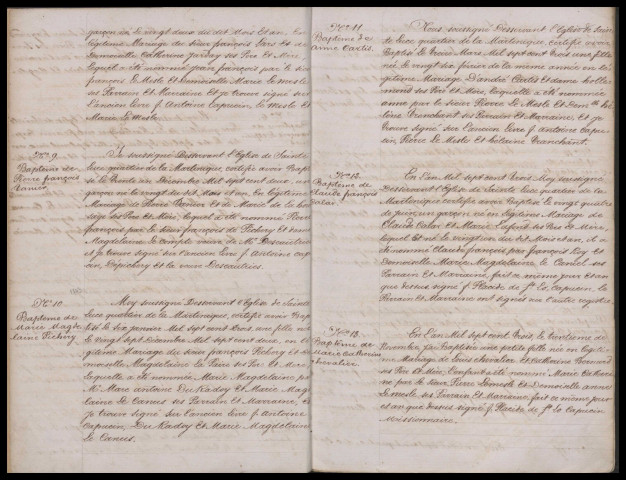 garçon né le vingt deux du dit Mois et an. En
légitime Mariage de Sieur françois Pars et de
Demoiselle Catherine ses Père et Mère,
lequel a été nommé jean françois par le Sr
françois le Mesle et Demoiselle Marie le Mesle
ses Parrain et Marraine et j'ai trouvé signé sur
l'ancien livre f. Antoine Capucin, le Mesle et
Marie le Mesle.
No. 9
Baptême de
Pierre françois
Je soussigné Desservant l'Eglise de Sainte
Luce quartier de la Martinique, certifie avoir Bapti
sé le Trente un Décembre Mil sept cent deux, un
garçon né le vingt du dit Mois et an. En légitime
Mariage de et de Marie de la
ses Père et Mère, lequel a été nommé Pierre
françois par le Sieur françois de Pichery et dame
Magdelaine le Compte veuve de Mr. Descautiers
et j'ai trouvé signé sur l'ancien livre f. antoine capu
cin, Depichery et la veuve Descautiers.
No. 10
Baptême de
Marie Magde
laine Pichery
Moy soussigné Desservant l'Eglise de Sainte
Luce quartier de la Martinique, certifie avoir Bap
tisé le six janvier Mil sept cent trois, une fille née
le vingt sept Décembre Mil sept cent deux, en lé
gitime Mariage du Sieur françois Pichery et de
moiselle Magdelaine la ses Père et Mère
laquelle a été nommée Marie Magdelaine par
Mr. Marc antoine Du Kadoy et Marie Magde
laine Le Caneus ses Parrain et Marraine, et
j'ai trouvé signé sur l'ancien livre f. antoine
capucin, Du Kadoy et Marie Magdelaine
Le Caneus.
No. 11
Baptême de
anne Cartis
Nous soussigné Desservant l'Eglise de Sain
te Luce quartier de la Martinique, certifie avoir
Baptisé le trois Mars Mil sept cent trois une fille
née le vingt six février de la même année en lé
gitime Mariage D'andré Cartis et dame
ses Père et Mère, laquelle a été nommée
anne par le Sieur Pierre Le Mesle et Demlle hé
lène Tranchant ses Parrain et Marraine, et j'ai
trouvé signé sur l'ancien livre f. antoine capu
cin, Pierre Le Mesle et hélaine Tranchant.
No. 12
Baptême de
Claude françois
Calar
En l'an Mil sept cent trois Moy soussigné
Desservant l'Eglise de Sainte Luce quartier de la
Martinique certifie avoir Baptisé le vingt quatre
de juin, un garçon né en légitime Mariage de
Claude Calar et Marie Lafont ses Père et Mère,
lequel Est né le vingt un du dit Mois et an, il a
été nommé Claude françois par françois Loy et
Demoiselle Marie Magdelaine le Canel ses
Parrain et Marraine, fait ce même jour et an
que dessus, signé f. Placide de St. Lo capucin, le
Parrain et Marraine ont signés au autre registre.
No. 13
Baptême de
Marie Catherine
Chevalier
En l'an Mil sept cent trois, le troisième de
Novembre, j'ai Baptisé une petite fille née en légiti
me Mariage de Louis Chevalier et Catherine
ses Père et Mère, l'enfant a été nommé Marie Catherine
ne par le Sieur Pierre Lemesle et Demoiselle anne
Lemesle ses Parrain et Marraine, fait ce même jour
et an que dessus signé f. Placide de St. Lo Capucin
Missionnaire.